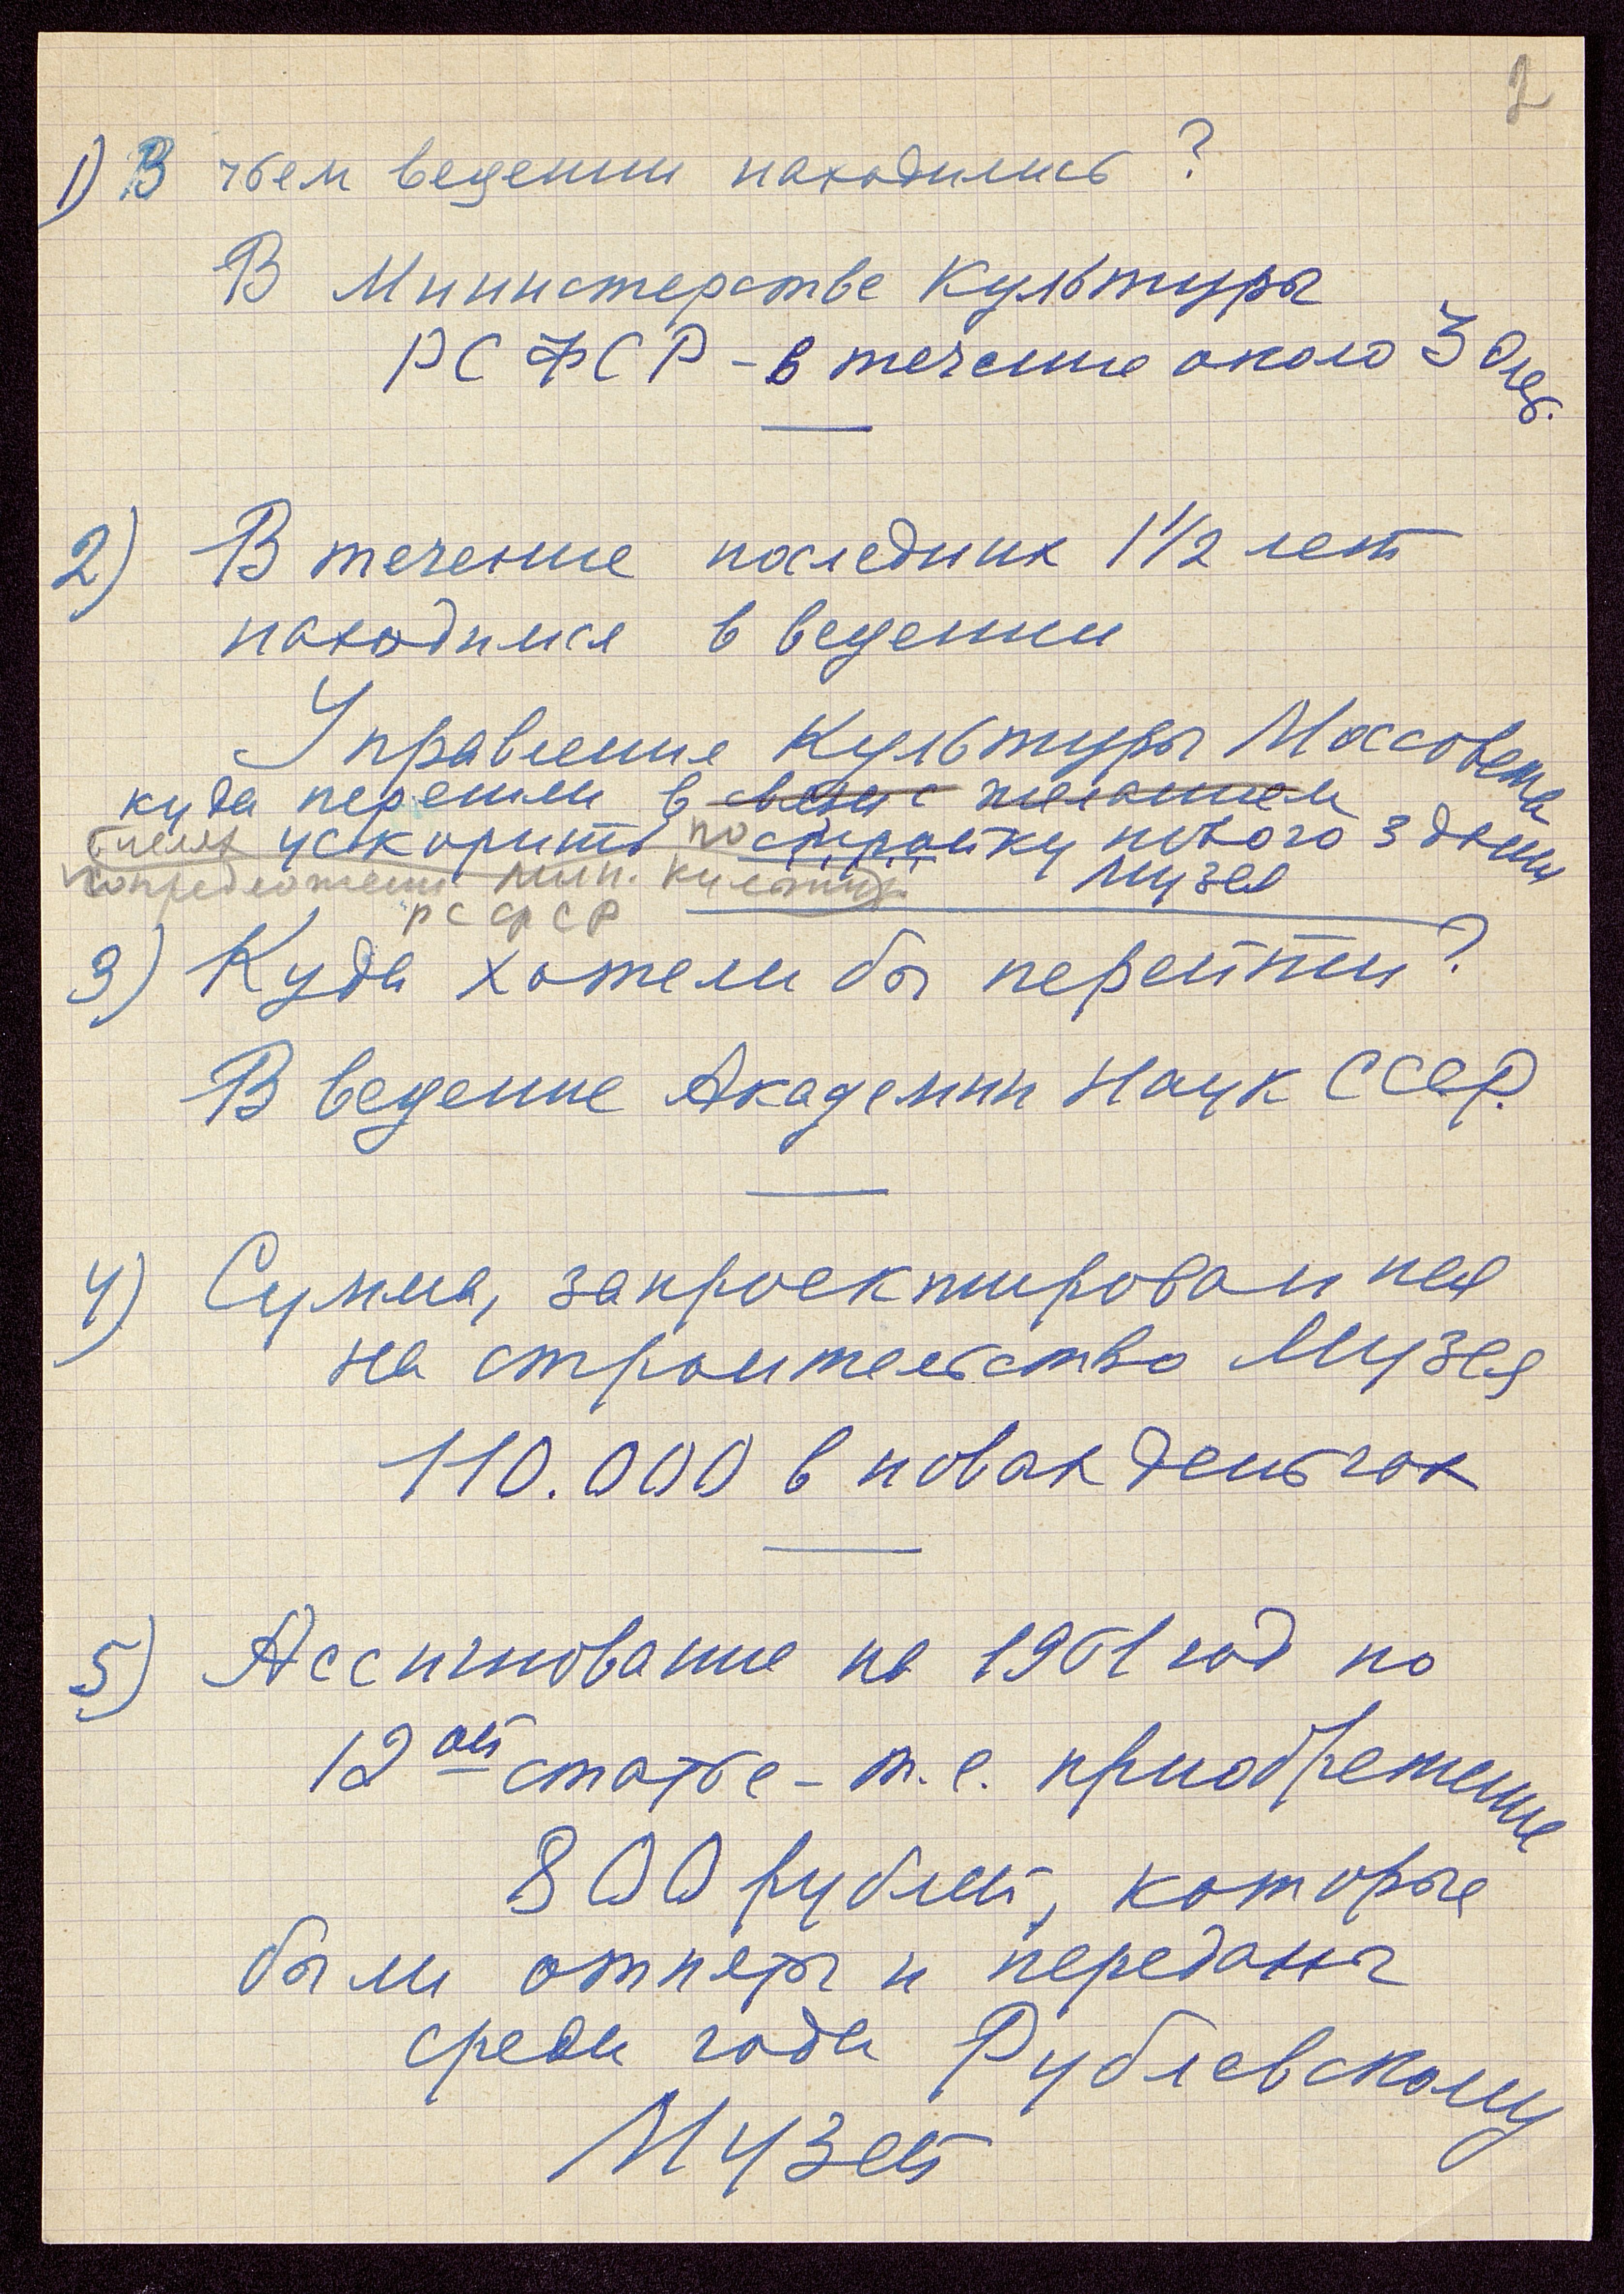 2
1) В чьем ведении находились?
В Министерстве Культуры
РСФСР – в течение около 30 лет.
2) В течение последних 1 1/2 лет
находимся в ведении
Управления Культуры Моссовета
куда перешли в связи с желанием
в целях ускорить постройку нового здания
по предложению Мин. Культуры Музея
РСФСР
3) Куда хотели бы перейти?
В ведение Академии Наук СССР.
4) Сумма, запроектированная
на строительство Музея
110.000 в новых деньгах
5) Ассигнование на 1961 год по
12ой статье – т.е. приобретение
800 рублей, которые
были отняты и переданы
среди года Рублевскому
Музею